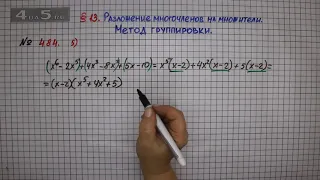 § 13. Разложение многочленов на множители.
Метод группировки.
№ 484. 5)
(x⁶-2x⁵)+(4x³-8x²)+(5x-10)=x⁵(x-2)+4x²(x-2)+5(x-2)=
=(x-2)(x⁵+4x²+5)